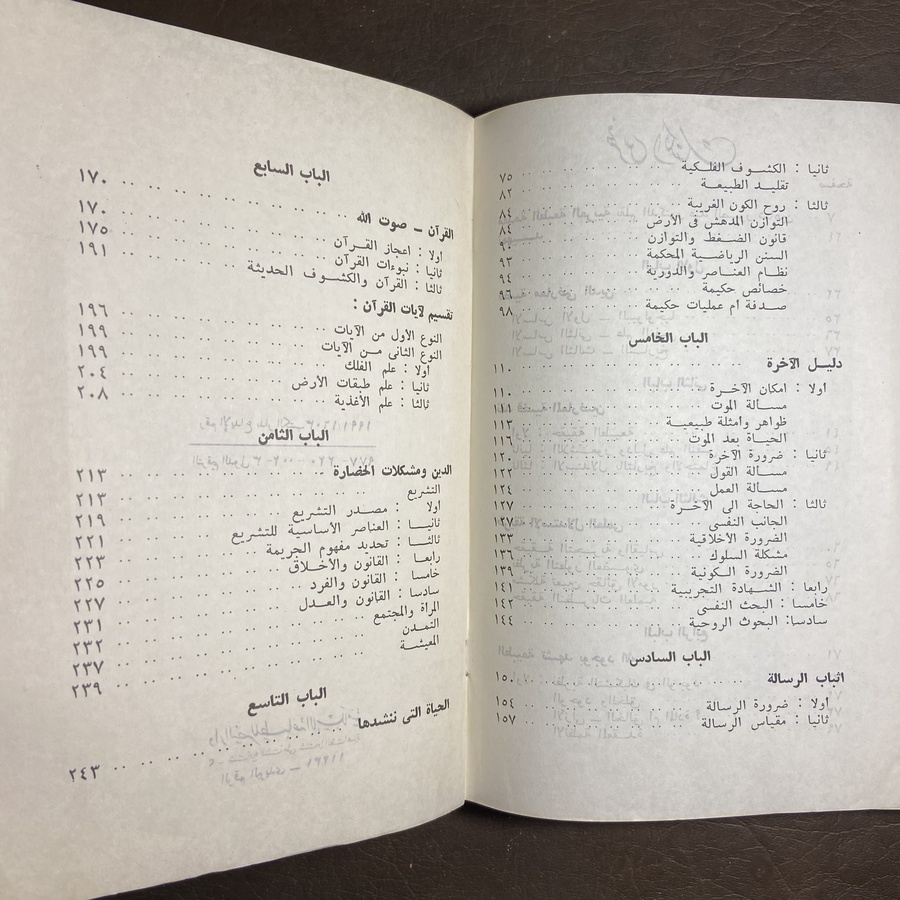 ثانيا : الكشوف الفلكية .. .. .. ٧٥
تقليد الطبيعة .. .. .. ٨٢
ثالثا : روح الكون الغريبة .. .. .. ٨٤
التوازن المدهش فى الأرض .. .. .. ٨٤
قانون الضغط والتوازن .. .. .. ٩٠
السنن الرياضية المحكمة .. .. .. ٩٣
نظام العناصر والدورية .. .. .. ٩٤
خصائص حكيمة .. .. .. ٩٦
صدفة أم عمليات حكيمة .. .. .. ٩٨
الباب الخامس
دليل الآخرة .. .. .. ١١٠
أولا : امكان الآخرة .. .. .. ١١٠
مسألة الموت .. .. .. ١١١
ظواهر وأمثلة طبيعية .. .. .. ١١٣
الحياة بعد الموت .. .. .. ١١٦
ثانيا : ضرورة الآخرة .. .. .. ١٢٠
مسألة القول .. .. .. ١٢٢
مسألة العمل .. .. .. ١٢٤
ثالثا : الحاجة الى الآخرة .. .. .. ١٢٧
الجانب النفسى .. .. .. ١٢٧
الضرورة الأخلاقية .. .. .. ١٣٣
مشكلة السلوك .. .. .. ١٣٦
الضرورة الكونية .. .. .. ١٣٩
رابعا : الشهادة التجريبية .. .. .. ١٤١
خامسا : البحث النفسى .. .. .. ١٤٢
سادسا: البحوث الروحية .. .. .. ١٤٤
الباب السادس
اثبات الرسالة .. .. .. ١٥٠
أولا : ضرورة الرسالة .. .. .. ١٥٤
ثانيا : مقياس الرسالة .. .. .. ١٥٧
الباب السابع
القرآن – صوت الله .. .. .. ١٧٠
أولا : اعجاز القرآن .. .. .. ١٧٠
ثانيا : نبوءات القرآن .. .. .. ١٧٥
ثالثا : القرآن والكشوف الحديثة .. .. .. ١٩١
تقسيم لآيات القرآن :
النوع الأول من الآيات .. .. .. ١٩٦
النوع الثانى من الآيات .. .. .. ١٩٩
أولا : علم الفلك .. .. .. ١٩٩
ثانيا : علم طبقات الأرض .. .. .. ٢٠٤
ثالثا : علم الأغذية .. .. .. ٢٠٨
الباب الثامن
الدين ومشكلات الحضارة .. .. .. ٢١٣
التشريع .. .. .. ٢١٣
أولا : مصدر التشريع .. .. .. ٢١٩
ثانيا : العناصر الأساسية للتشريع .. .. .. ٢٢١
ثالثا : تحديد مفهوم الجريمة .. .. .. ٢٢٣
رابعا : القانون والأخلاق .. .. .. ٢٢٥
خامسا : القانون والفرد .. .. .. ٢٢٧
سادسا : القانون والعدل .. .. .. ٢٣١
المرأة والمجتمع .. .. .. ٢٣٢
التمدن .. .. .. ٢٣٧
المعيشة .. .. .. ٢٣٩
الباب التاسع
الحياة التى ننشدها .. .. .. ٢٤٣